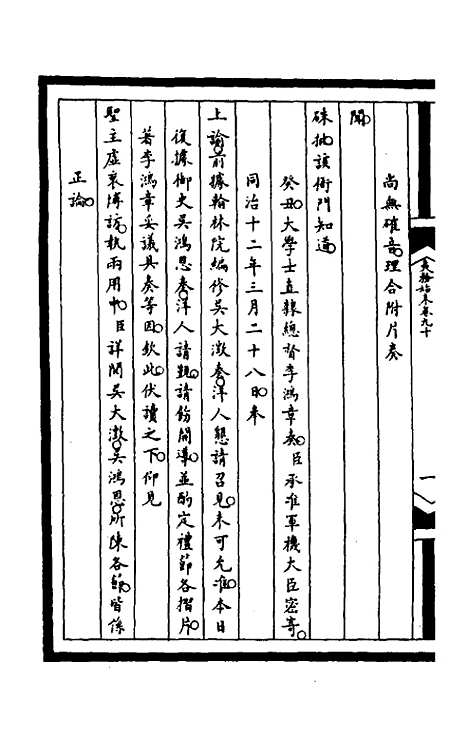 夷務始末卷九十
一
尚無確音。理合附片奏
聞。
硃批。該衙門知道。
癸丑。大學士直隸總督李鴻章奏。臣承准軍機大臣密寄。
同治十二年三月二十八日。奉
上諭。前據翰林院編修吳大澂奏。洋人懇請召見。未可允准。本日
復據御史吳鴻恩奏。洋人請覲。請飭開導。並酌定禮節各摺片。
著李鴻章妥議具奏等因。欽此。伏讀之下。仰見
聖主虛衷博訪。執兩用中。臣詳閱吳大澂。吳鴻恩。所陳各節。皆係
正論。